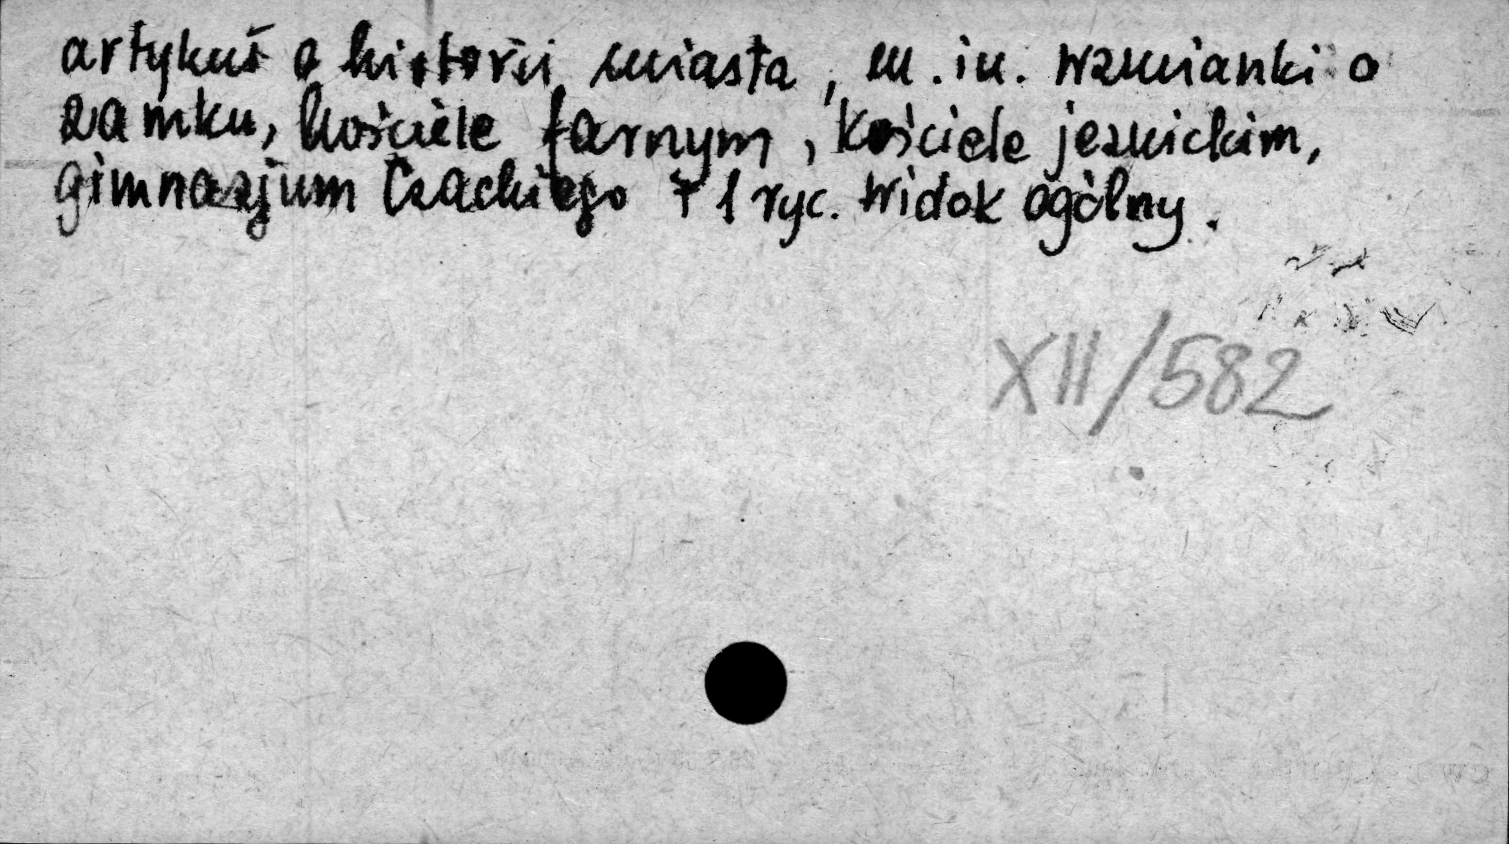 artykuł o historii miasta, m.in. wzmianki o
zamku, kościele farnym, kościele jezuickim,
gimnazjum Czackiego + 1 ryc. widok ogólny.
XII/582